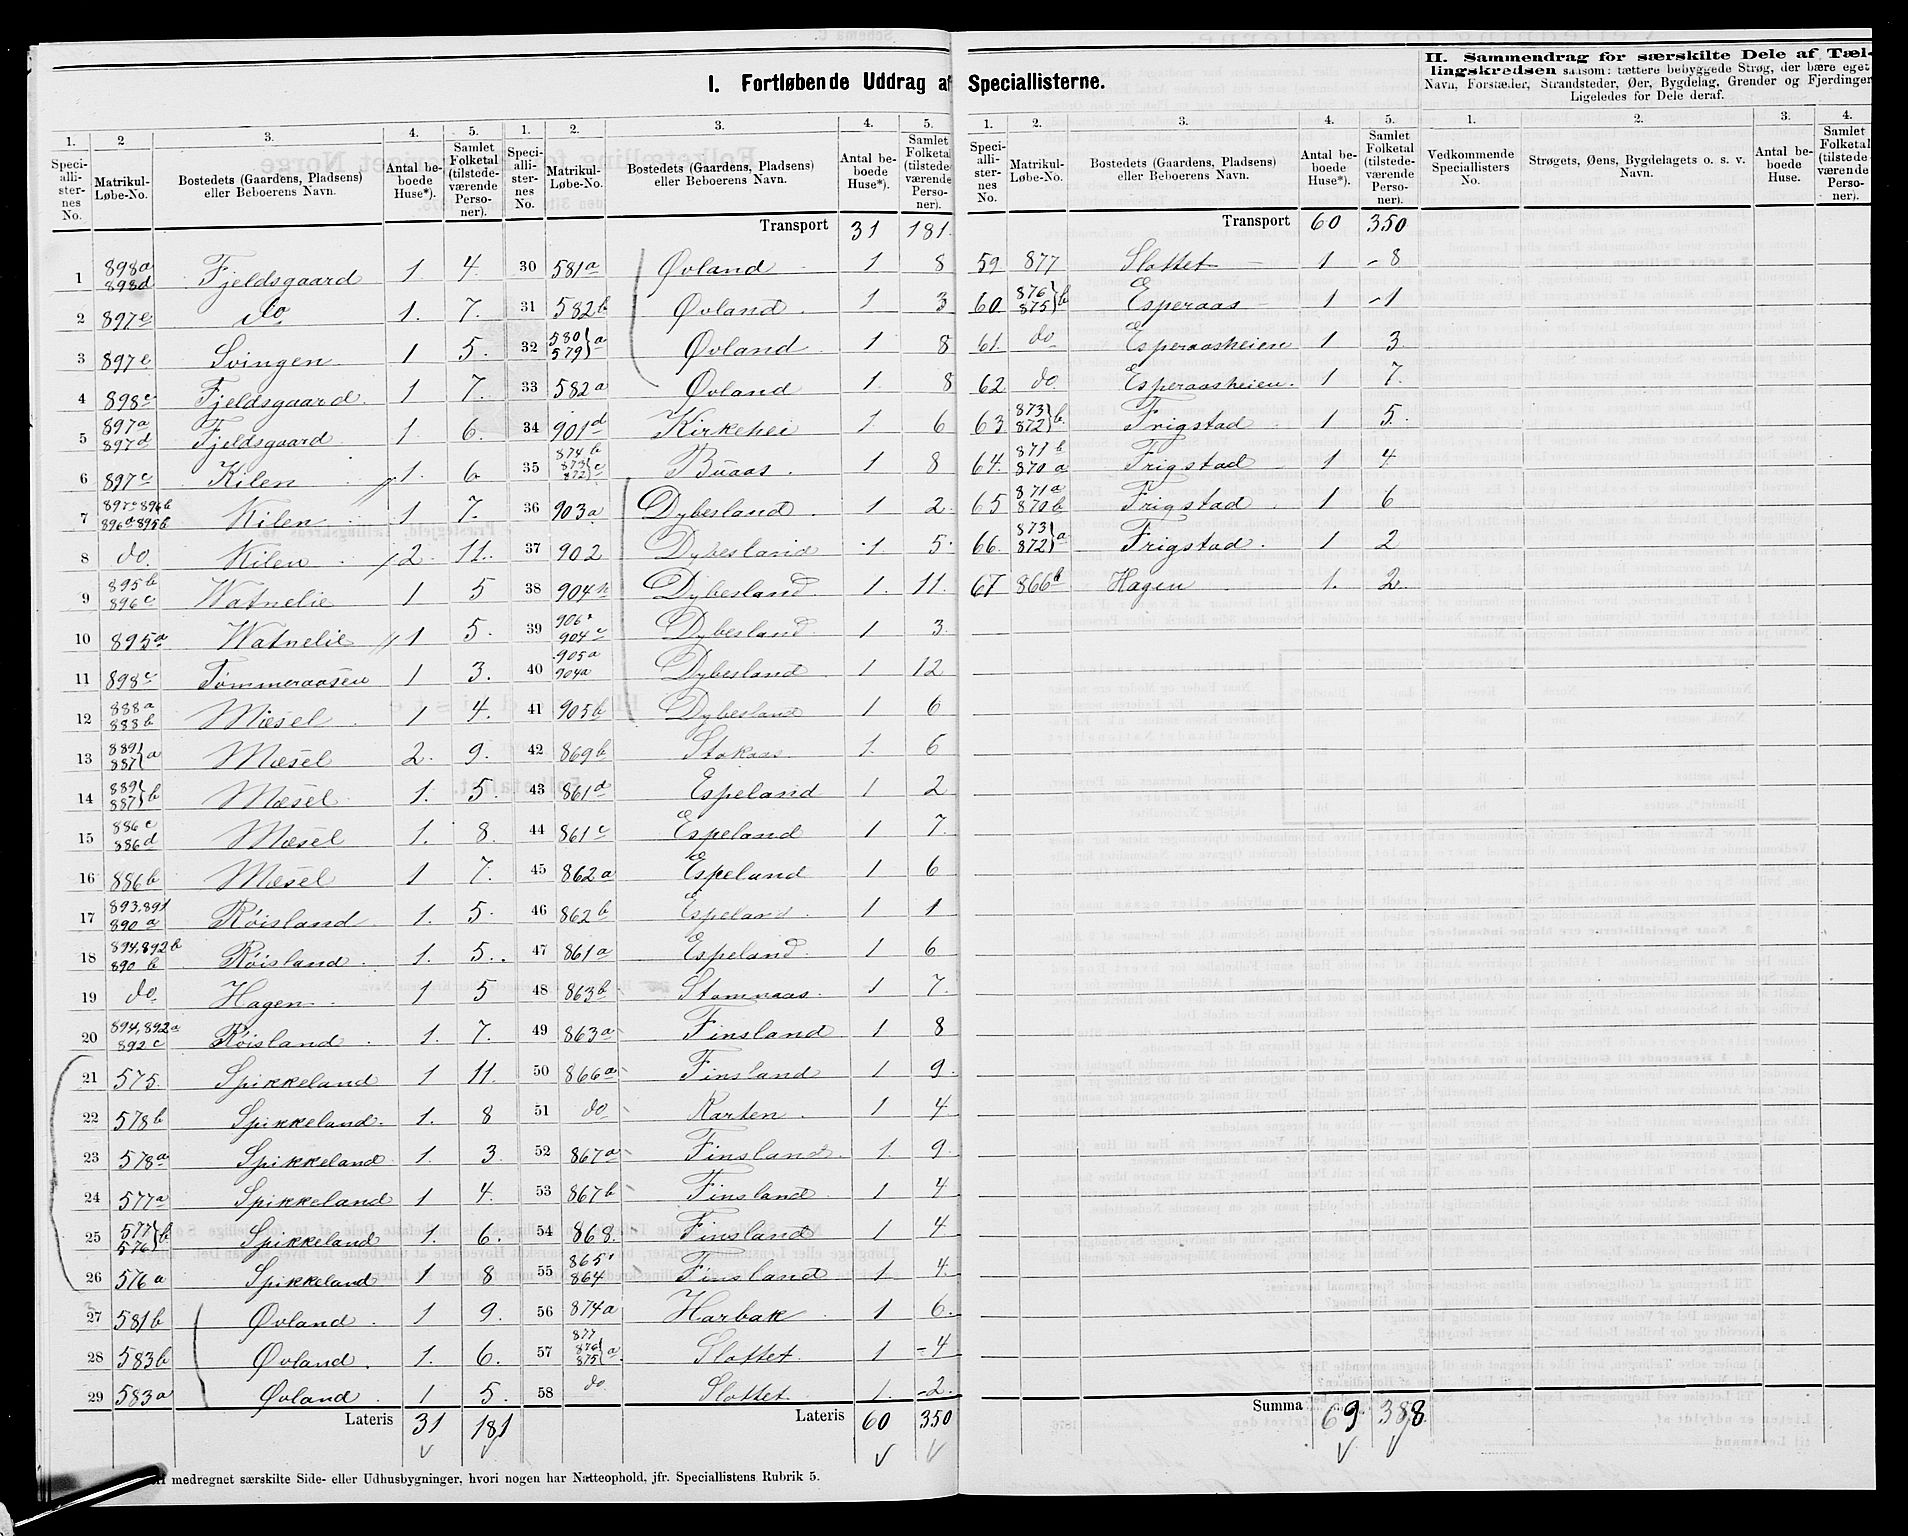 I. Fortløbende Uddrag af Speciallisterne.
II. Sammendrag for særskilte Dele af Tællingskredsen saasom: tættere bebyggede Strøg, der bære eget
Navn, Forstæder, Strandsteder, Øer, Bygdelag, Grender og Fjerdinger
Ligeledes for Dele deraf.
1. 2 3. 4. 5.
Speciallisternes No. Matrikul-Løbe-No. Bostedets (Gaardens, Pladsens) eller Beboerens Navn. Antal beboede Huse*). Samlet Folketal (tilstedeværende Personer).
1 898a 898d Fjeldsgaard 1. 4.
2 897e do 1. 7.
3 897e Svingen 1 5.
4 898c Fjeldsgaard. 1 7.
5 897a 897d Fjeldsgaard 1. 6.
6 897c Kilen 1. 6
7 897c 896b 896a 895b Kilen 1 7.
8 do. Kilen 2. 11.
9 895b 896c Watnelie 1 5
10 895a Watnelie 1 5.
11 898c Tømmeraasen 1 3.
12 888a 888b Mæsel 1 4.
13 889 887 a Mæsel 2. 9.
14 889 887 b Mæsel 1. 5.
15 886c 886d Mæsel 1. 8.
16 886b Mæsel 1 7.
17 893,891 890a Røisland 1. 5.
18 894,892b 890b Røisland 1. 5.
19 do Hagen 1 5
20 894,892a 892c Røisland 1. 7.
21 575. Spikkeland 1 11.
22 578b Spikkeland. 1. 8
23 578a Spikkeland 1. 3.
24 577a Spikkeland 1 4.
25 577 576 b Spikkeland 1. 6.
26 576a Spikkeland 1 8
27 581b Øvland 1 9.
28 583b Øvland. 1. 6.
29 583a Øvland 1 5.
Lateris 31 181
1. 2. 3. 4. 5.
Speciallisternes No. Matrikul-Løbe-No. Bostedets (Gaardens, Pladsens) eller Beboerens Navn. Antal beboede Huse*). Samlet Folketal (tilstedeværende Personer).
Transport 31 181.
30 581a Øvland 1 8
31 582b Øvland 1 3
32 580 579 a Øvland 1 8
33 582a Øvland 1. 8
34 901d Kirkehei 1 6
35 874b 873 872 c Buaas. 1 8
36 903a Dybesland. 1 2.
37 902 Dybesland 1. 5.
38 904b Dybesland 1. 11.
39 904c Dybesland 1 3.
40 905a 904a Dybesland 1 12
41 905b Dybesland 1 6
42 869b Stokaas 1. 6
43 861d Espeland 1 2
44 861c Espeland 1 7.
45 862a Espeland 1 6
46 862b Espeland 1 1
47 861a Espeland 1 6
48 863b Stomnaas. 1 7.
49 863a Finsland 1 8
50 866a Finsland 1 9.
51 do Karten 1 4
52 867a Finsland. 1. 9.
53 867b Finsland 1 4
54 868. Finsland 1 4
55 865 864 Finsland 1 4.
56 874a Harbak 1 6.
57 877 876 875 a Slottet 1 4
58 do Slottet 1. 2.
Lateris 60 350
1. 2. 3. 4. 5.
Speciallisternes No. Matrikul-Løbe-No. Bostedets (Gaardens, Pladsens) eller Beboerens Navn. Antal beboede Huse*). Samlet Folketal (tilstedeværende Personer).
Transport 60 350
59 877 Slottet 1 8
60 876 875 b Esperaas 1 1
61. do Esperaasheien 1 3.
62 do. Esperaasheien. 1 7.
63 873 872 b. Frigstad 1 5.
64. 871b 870a Frigstad 1 4.
65 871a 870b Frigstad 1 6
66. 873 872 a Frigstad. 1 2
67 866d Hagen 1. 2.
Summa 69 388
1. 2. 3. 4.
Vedkommende Speciallisters No. Strøgets, Øens, Bygdelagets o. s. v. Navn. Antal beboede Huse. Samlet Folketal (tilstedeværende Personer).
medregnet særskilte Side- eller Udhusbygninger, hvori nogen har Natteophold, jfr. Speciallistens Rubrik 5.